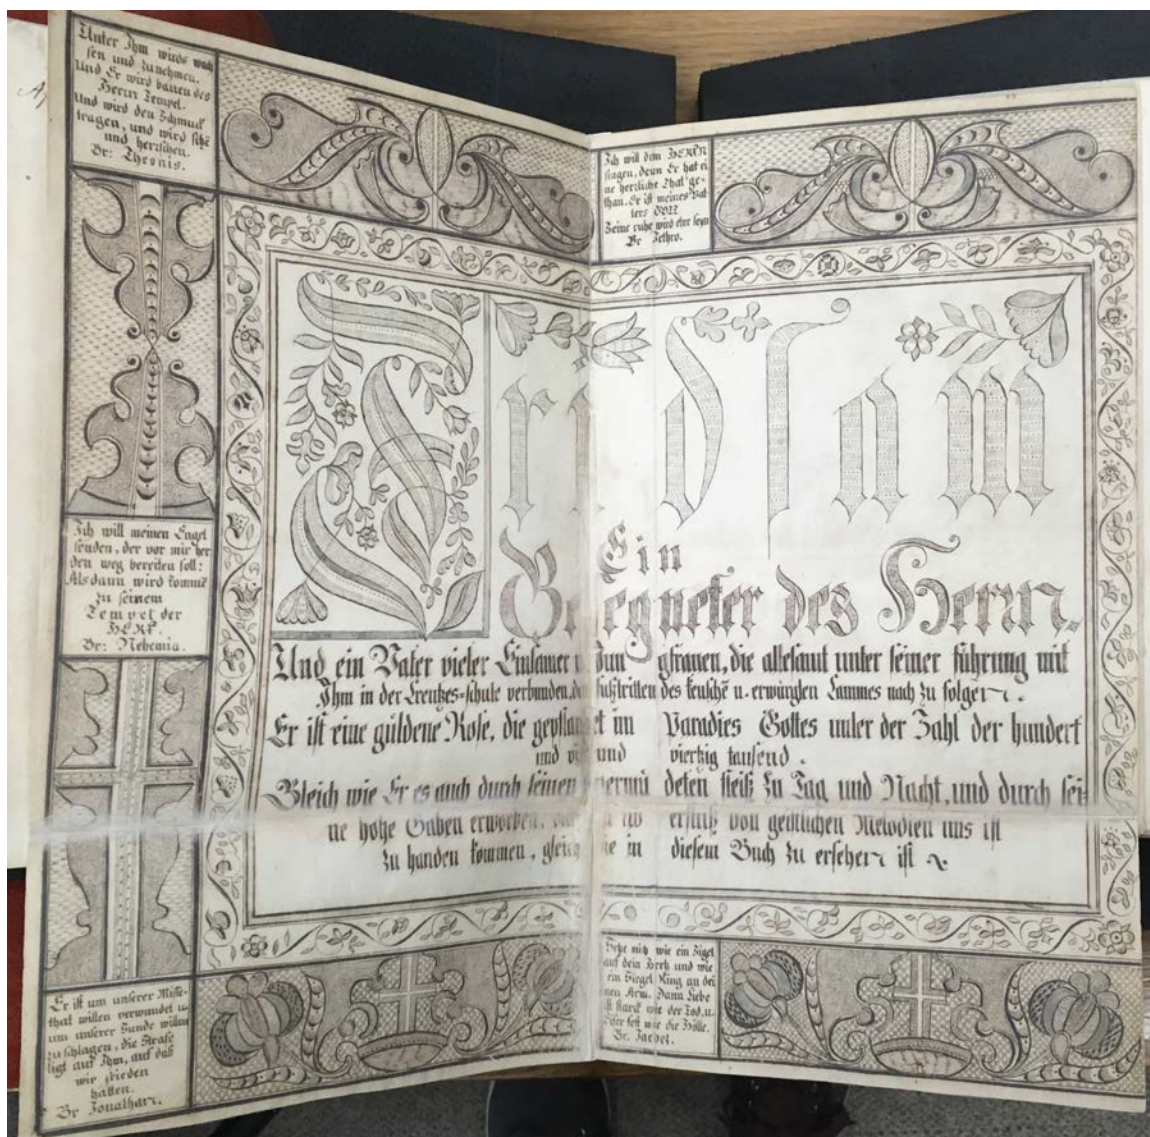 Unter Ihm wirds wach
sen und zunehmen.
Und Er wird bauen des
Herrn Tempel.
Und wird den Schmuck
tragen, und wird sitzē
und herrschen.
Br: Theonis.
Ich will dem HERRN
singen, denn Er hat ei
ne herrliche That ge-
than. Er ist meines Vat-
ters GOTT
Seine ruhe wird ehre seyn
Br Jethro.
Ich will meinen Engel
senden, der vor mir her
den weg bereiten soll:
Alsdann wird kommē
zu seinem
Tempel der
HERR.
Br: Nehemia.
Fridsam
Ein
Begegneter des Herrn.
Und ein Vater vieler Einsamer u. Jungfrauen, die allesamt unter seiner führung mit
Ihm in der Creutzes-schule verbunden, den Fußtritten des keuschē u. erwürgten Lammes nach zu folgen.
Er ist eine güldene Rose, die gepflantzet im Paradies Gottes unter der Zahl der hundert
und vier und viertzig tausend.
Gleich wie Er es auch durch seinen unermüdeten fleiß zu Tag und Nacht, und durch sei
ne hohe Gaben erworben, von geistlichen Melodien uns ist
zu handen kommen, gleich wie in diesem Buch zu ersehen ist
Er ist um unserer Misse-
that willen verwundet u.
um unserer Sünde willen
zu schlagen, die Strafe
ligt auf Ihm, auf daß
wir frieden
hatten.
Br Jonathan.
Setze mich wie ein Sigel
auf dein Hertz und wie
ein Siegel Ring an dei
nen Arm. Dann Liebe
ist starck wie der Tod, u.
Eifer fest wie die Hölle.
Br. Jaebez.